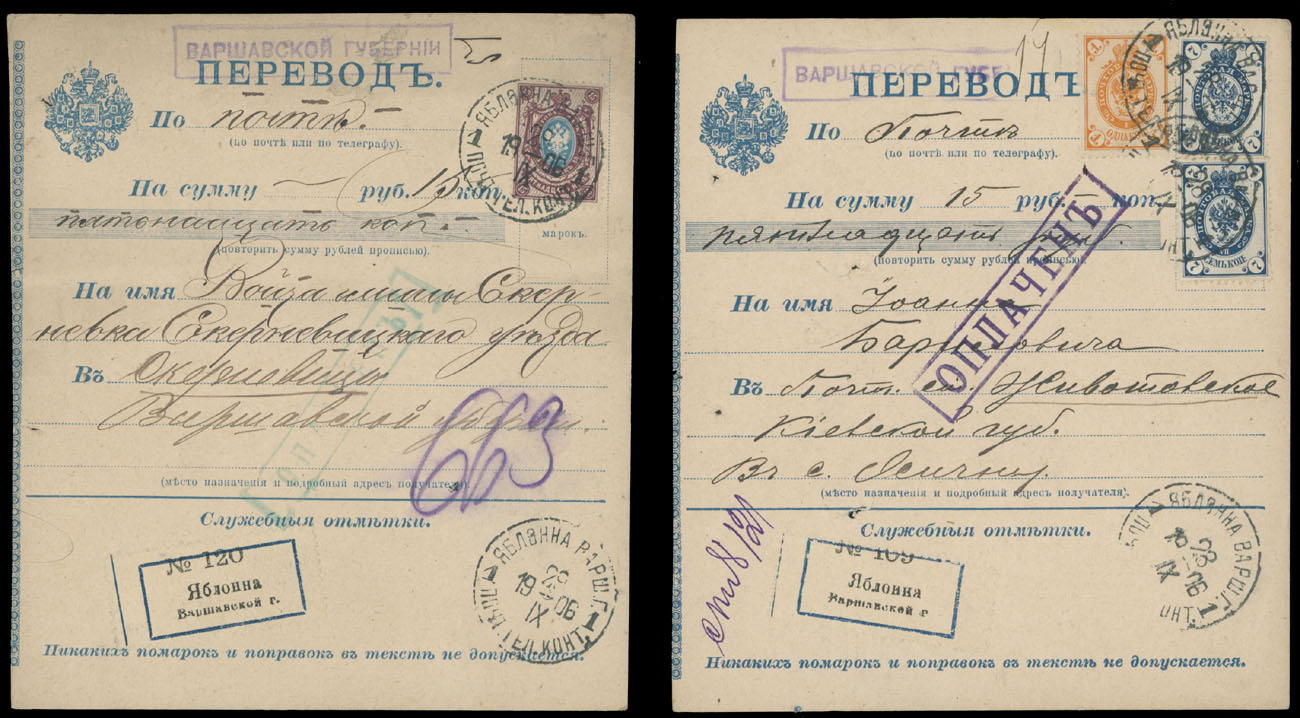 ВАРШАВСКОЙ ГУБЕРНІИ
ПЕРЕВОДЪ.
По почтѣ.
(по почтѣ или по телеграфу).
На сумму — руб. 15 коп.
пятонацать коп.
(повторить сумму рублей прописью).
марокъ.
На имя Войта гмины Скер-
невка Скерневицкаго уѣзда
Въ
Варшавской губерн.
(мѣсто назначенія и подробный адресъ получателя).
663
Служебныя отмѣтки.
№ 120
Яблонна
Варшавской г.
ЯБЛОННА ВАРШ.Г.
19 06
IX
1 ПОЧТ.ТЕЛ.КОНТ. 1
Никакихъ помарокъ и поправокъ въ текстѣ не допускается.
ВАРШАВСКОЙ ГУБЕ
ПЕРЕВОДЪ
По Почтѣ
(по почтѣ или по телеграфу).
На сумму 15 руб. коп.
пятнадцать руб.
(повторить сумму рублей прописью).
7 7
СЕМЬ КОП.
На имя Іоанна
ОПЛАЧЕНЪ
Въ Почт. ст. Животовское
Кіевской губ.
Въ с.
(мѣсто назначенія и подробный адресъ получателя).
Служебныя отмѣтки.
№ 109
Яблонна
Варшавской г
ЯБЛОННА ВАРШ.Г.
IX
1
Никакихъ помарокъ и поправокъ въ текстѣ не допускается.